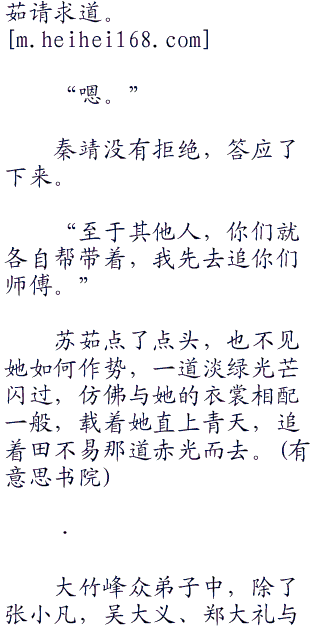 茹请求道。
[m.heihei168.com]
“嗯。”
秦靖没有拒绝，答应了
下来。
“至于其他人，你们就
各自帮带着，我先去追你们
师傅。”
苏茹点了点头，也不见
她如何作势，一道淡绿光芒
闪过，仿佛与她的衣裳相配
一般，载着她直上青天，追
着田不易那道赤光而去。(有
意思书院)
.
大竹峰众弟子中，除了
张小凡，吴大义、郑大礼与